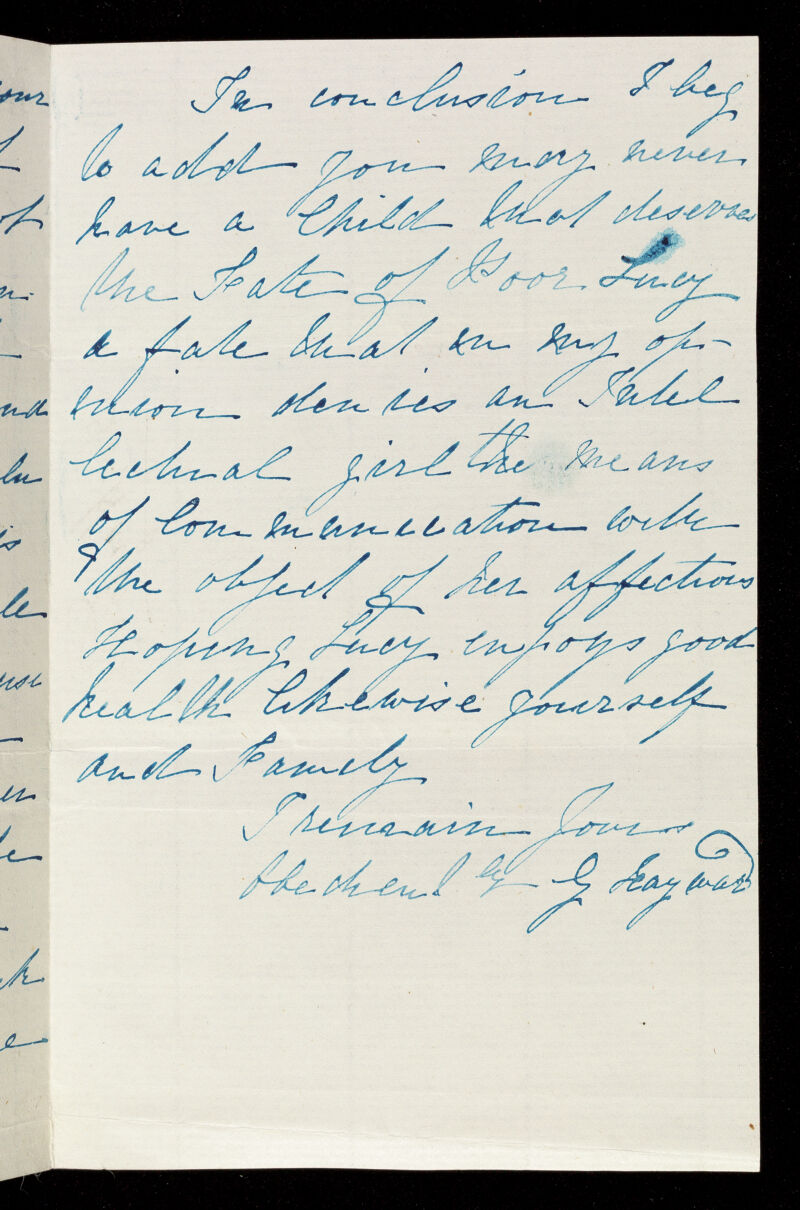 In conclusion I beg
to add you may never
have a Child that deserves
the Fate of Poor Lucy
a fate that in my op-
inion denies an Intel
lectual girl the means
of Communication with
the object of her affections
Hoping Lucy enjoys good
health likewise yourself
and Family
I remain Yours
Obedient ly G Hayward